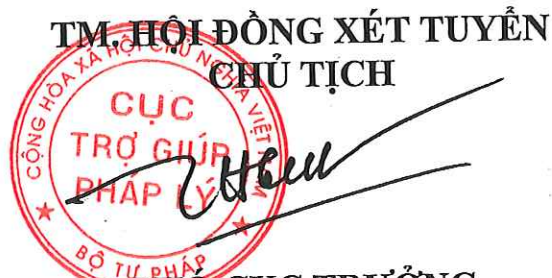 TM. HỘI ĐỒNG XÉT TUYỂN
CHỦ TỊCH
CỘNG HÒA XÃ HỘI CHỦ NGHĨA VIỆT NAM
CỤC
TRỢ GIÚP
PHÁP LÝ
BỘ TƯ PHÁP
CỤC TRƯỞNG